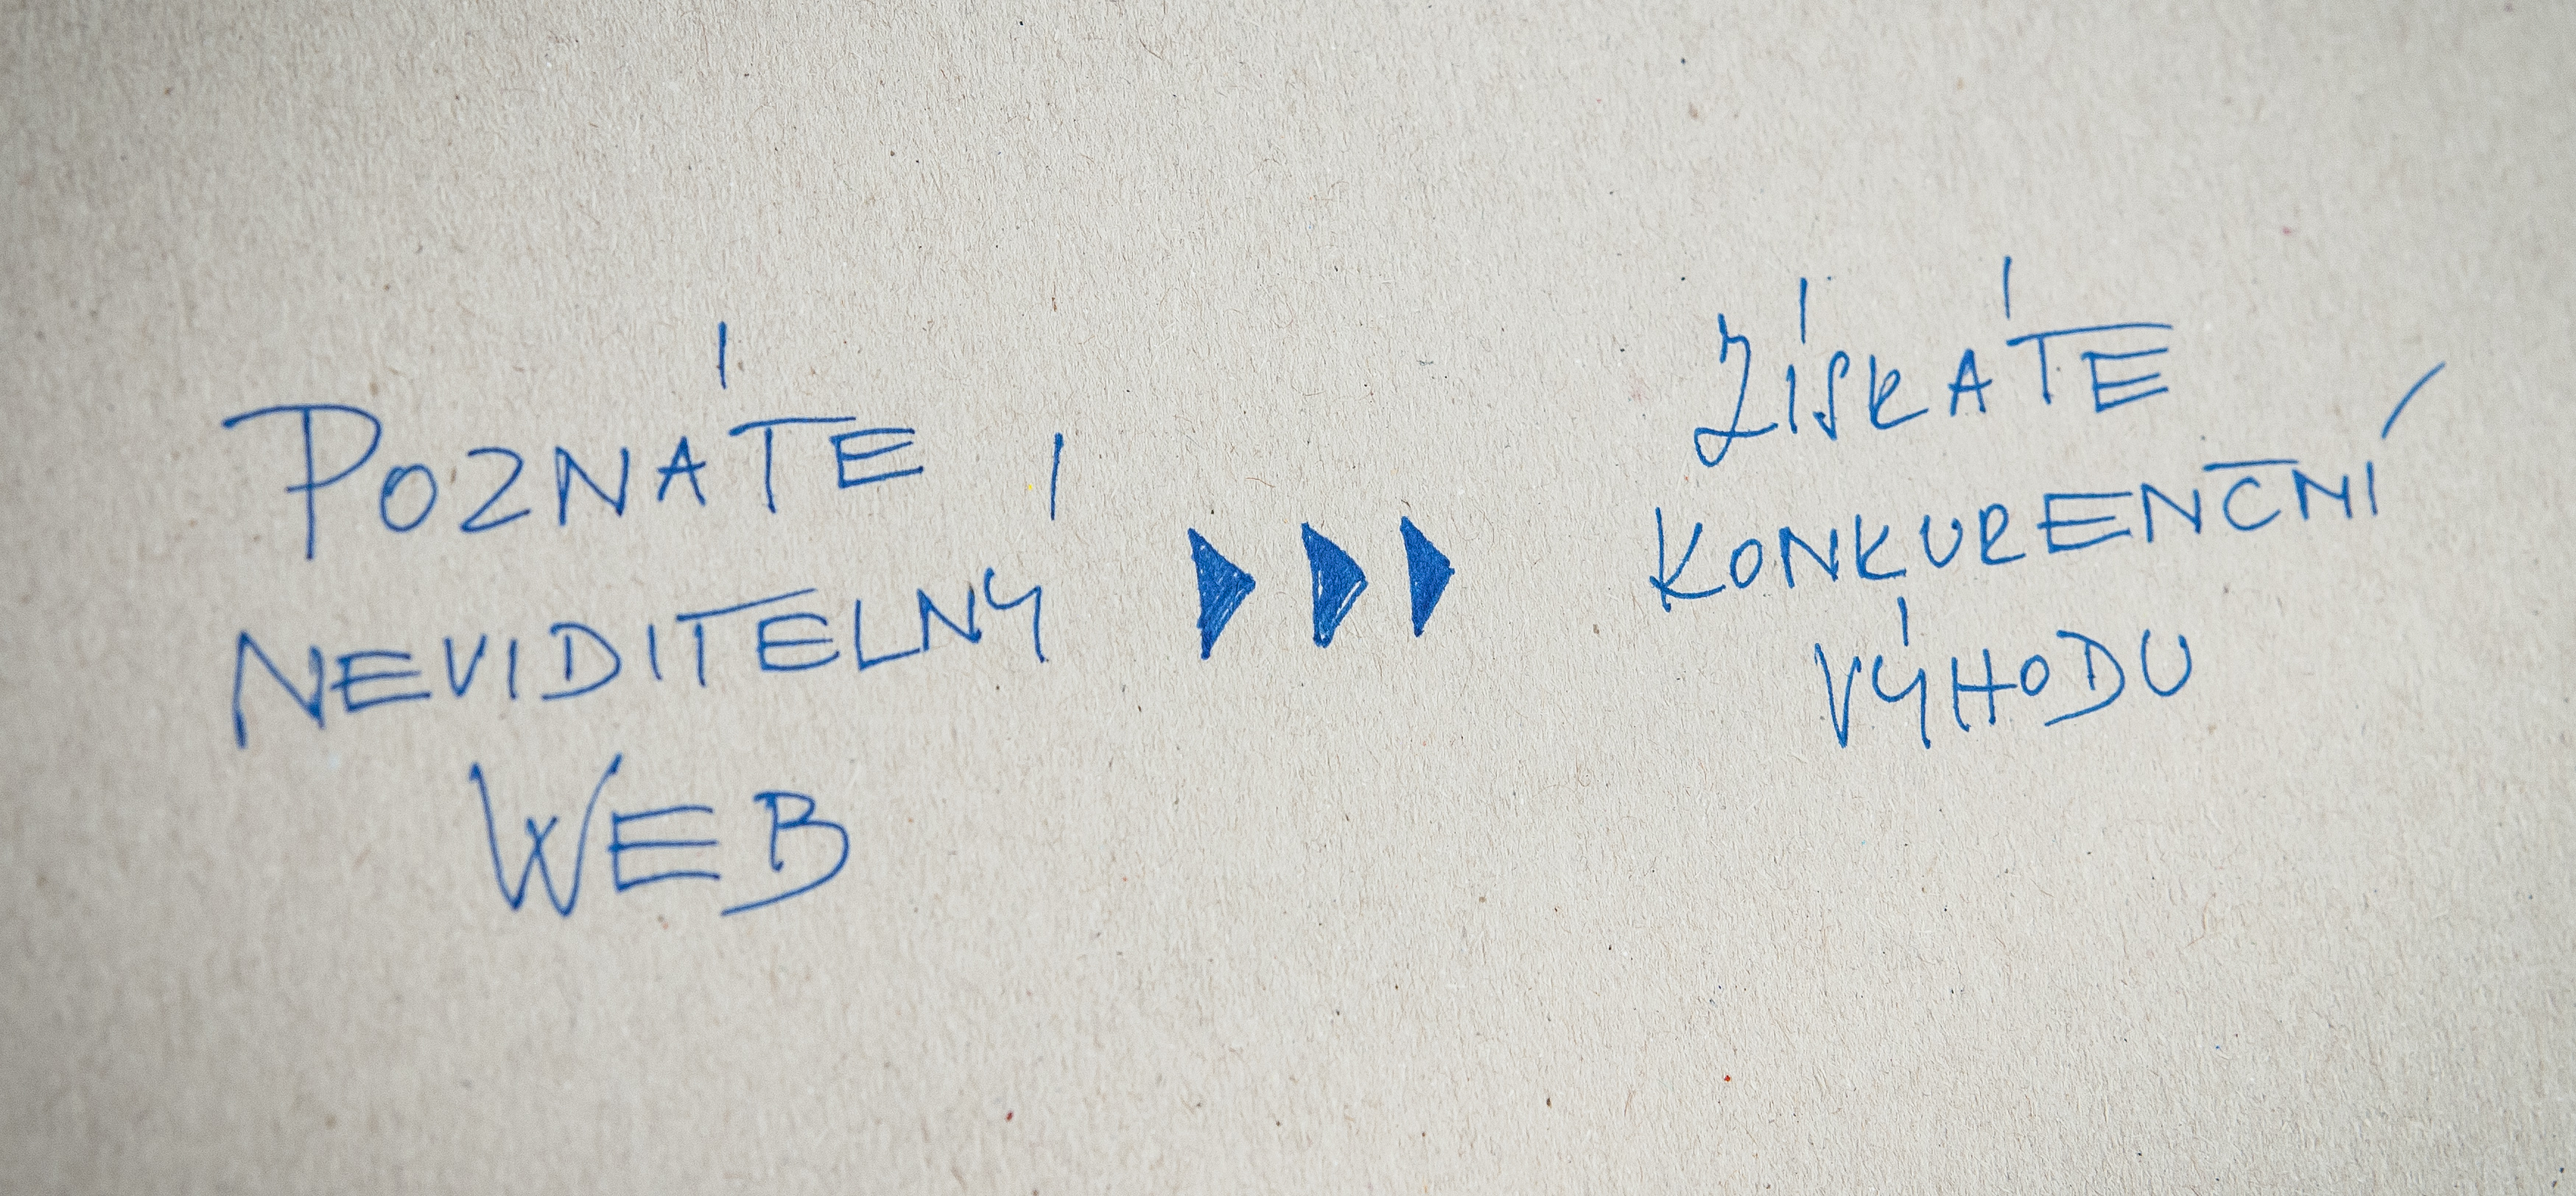 POZNÁTE
NEVIDITELNÝ
WEB
ZÍSKÁTE
KONKURENČNÍ
VÝHODU